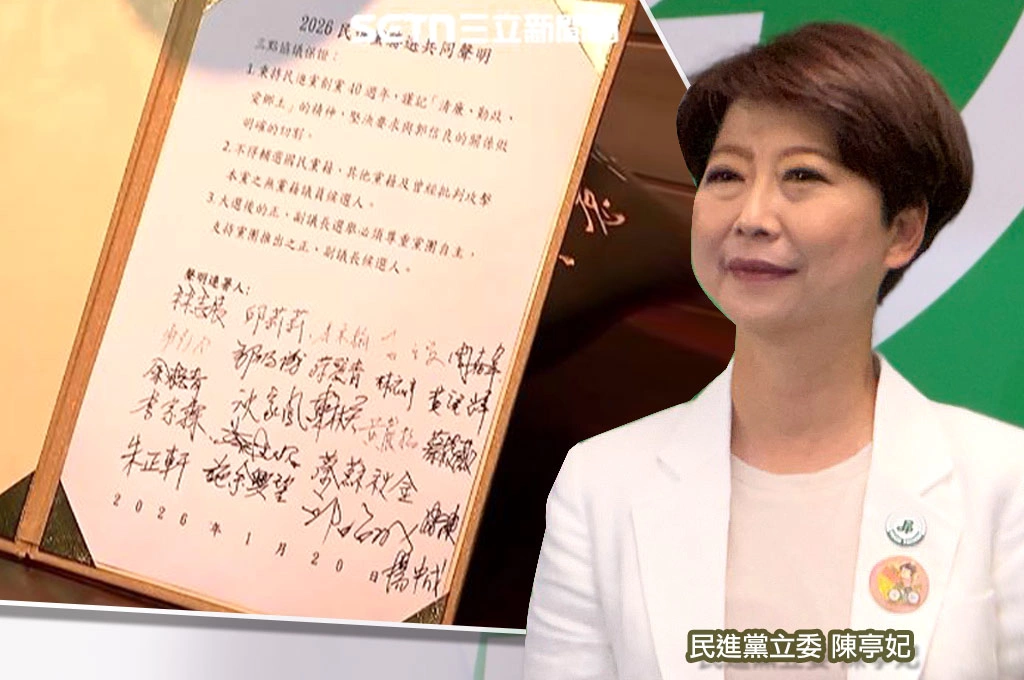 SETN三立新聞網
2026民進黨 共同聲明
三點協議保證：
1.秉持民進黨創黨40週年，謹記「清廉、勤政、
愛鄉土」的精神，堅決要求與郭信良的關係做
明確的切割。
2.不得輔選國民黨籍、其他黨籍及曾經批判攻擊
本黨之無黨籍議員候選人。
3.大選後的正、副議長選舉必須尊重黨團自主，
支持黨團推出之正、副議長候選人。
聲明連署人：
林志展 邱莉莉 周嘉韋
蔡麗青 黃肇輝
余柷青
李宗霖 沈家鳳 蔡筱薇
朱正軒 施余興望 蔡蘇秋金
2026年1月20日
楊中成
民進黨立委 陳亭妃